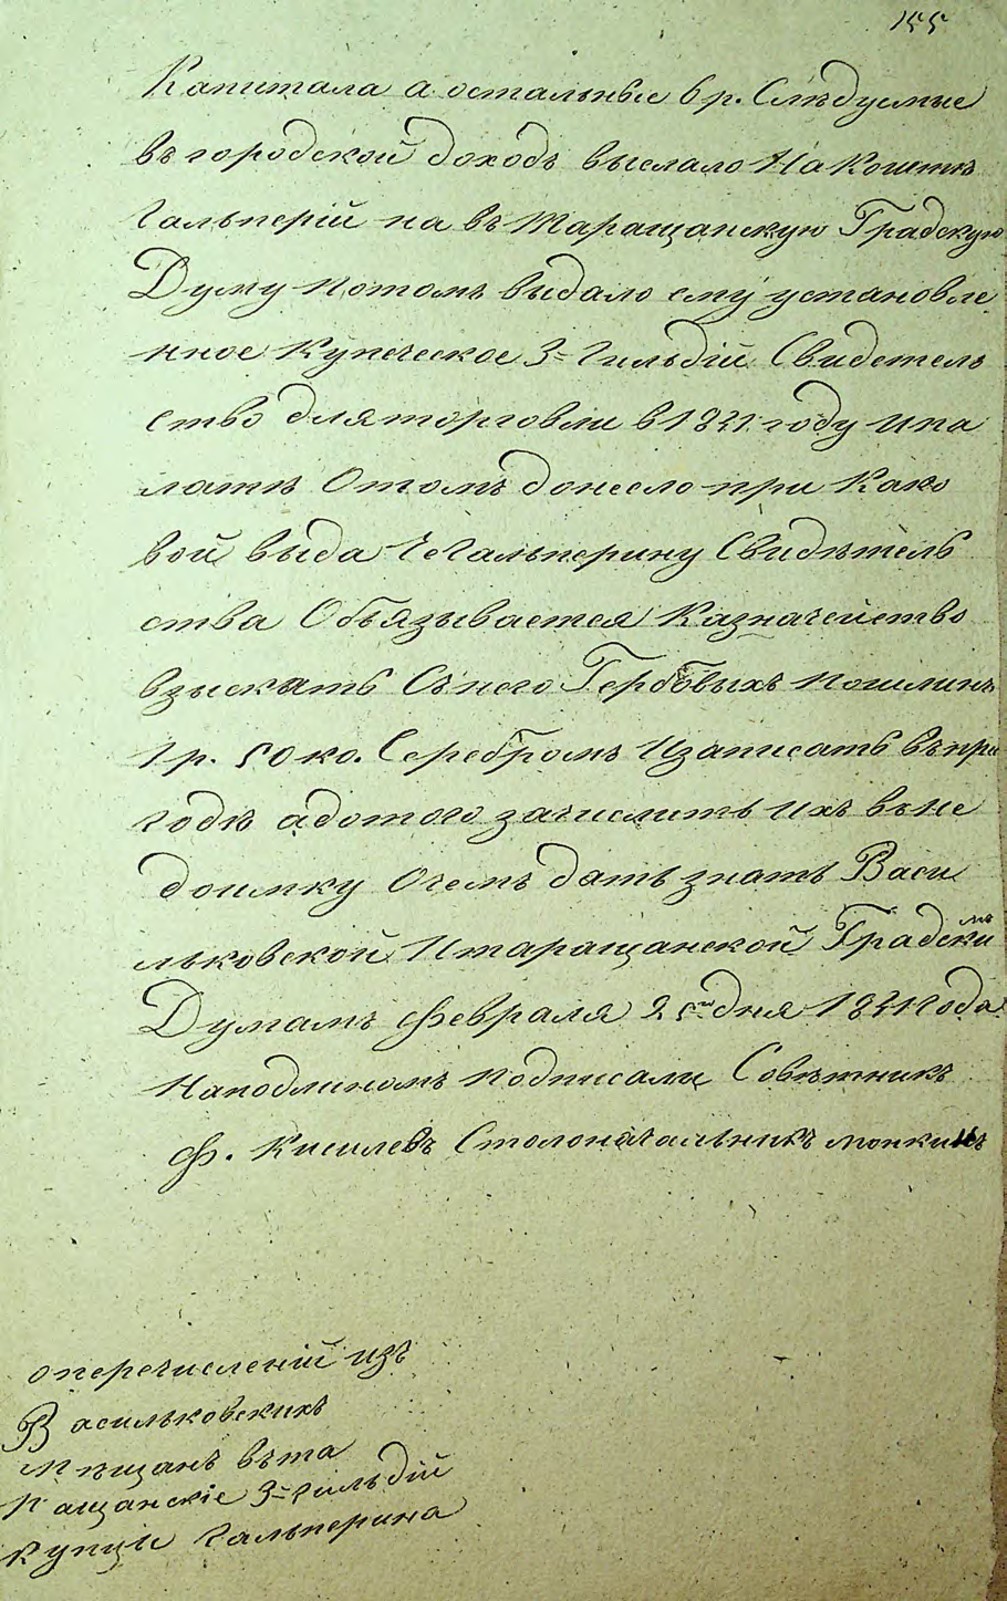 155
Капитала а остальные 6 р. Слѣдуемые
въ городской доходъ выслало На Коштъ
Гальперій на въ Таращанскую Градскую
Думу Потомъ выдало ему установле
нное Купеческое 3= Гильдіи Свидетель
ство для торговли в 1841 году ипа
латѣ Отомъ донесло при Како
вой выда че Гальперину Свидѣтель
ства Объязывается Казначейство
взыскать Снего Гербовыхъ пошлинъ
1 р. 50 ко. Серебромъ Изаписать въпри
ходъ адотого зачислить ихъ въне
доимку Очемъ дать знать Васи
льковской Итаращанской Градскимъ
Думамъ февраля 25го дня 1841 года
Наподлиномъ подписали Совѣтникъ
Ф. Киселевъ Столоначальникъ
оперечисленій изъ
Васильковскихъ
мѣщанъ въта
ращанскіе 3= гильдій
купцы Гальперина